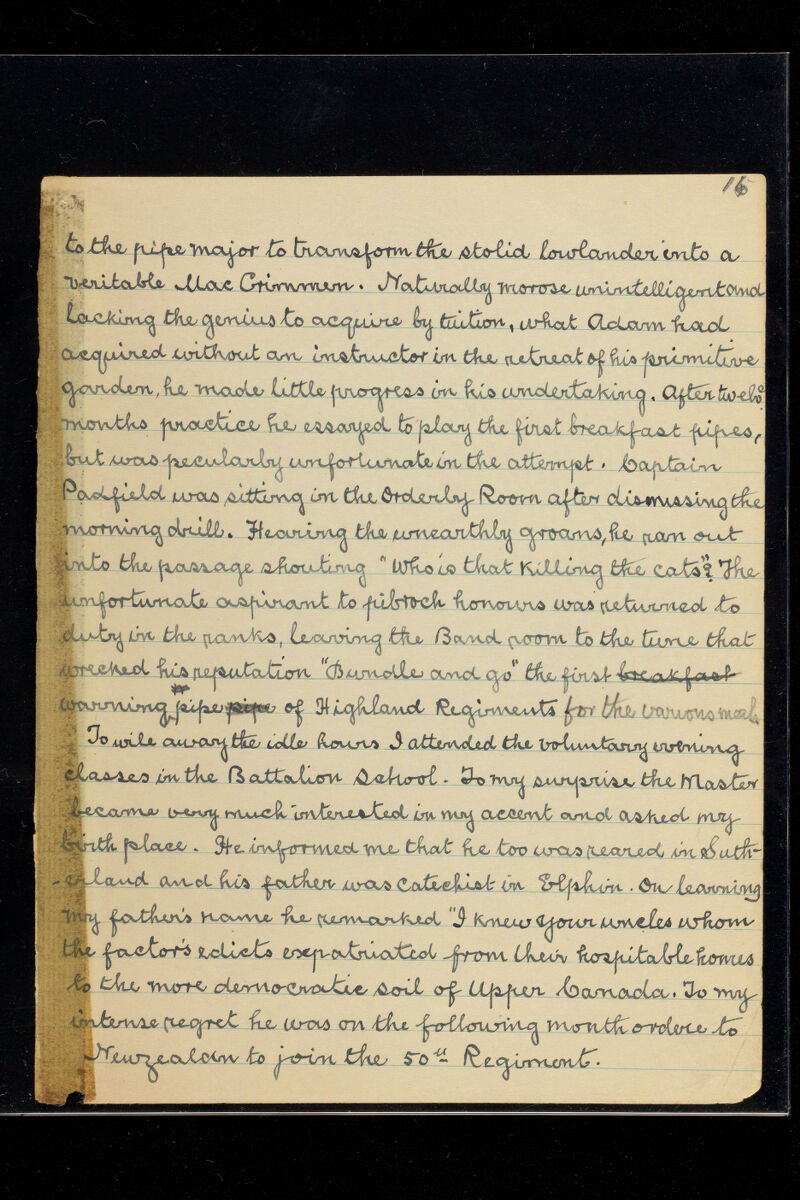 16
to the pipe major to transform the stolid lowlander into a
veritable Mac Crimmen. Naturally morose unintelligent and
lacking the genius to acquire by tuition, what Adam had
acquired without an instructor in the retreat of his primitive
garden, he made little progress in his undertaking. After twelve
months practice he essayed to play the first breakfast pipes,
but was pecularly unfortunate in the attempt. Captain
Padfield was sitting in the Orderly Room after dismissing the
morning drill. Hearing the unearthly groans, he ran out
into the passage shouting "Who is that killing the cats"? The
unfortunate aspirant to pibroch honours was returned to
duty in the ranks, leaving the Band room to the tune that
wrecked his reputation "Bundle and go" the first breakfast
warning pipe pipe of Highland Regiments for the various meals
To wile away the idle hours I attended the voluntary evening
classes in the Battalion School. To my surprise the Master
became very much interested in my accent and asked my
birth place. He informed me that he too was reared in Suth-
-erland and his father was catechist in Elphin. On learning
my father's name he remarked "I knew your uncles whom
the factor's edicts expatriated from their hospitable homes
to the more democratic soil of Upper Canada. To my
intense regret he was on the following month ordere to
Newzealan to join the 50th Regiment.